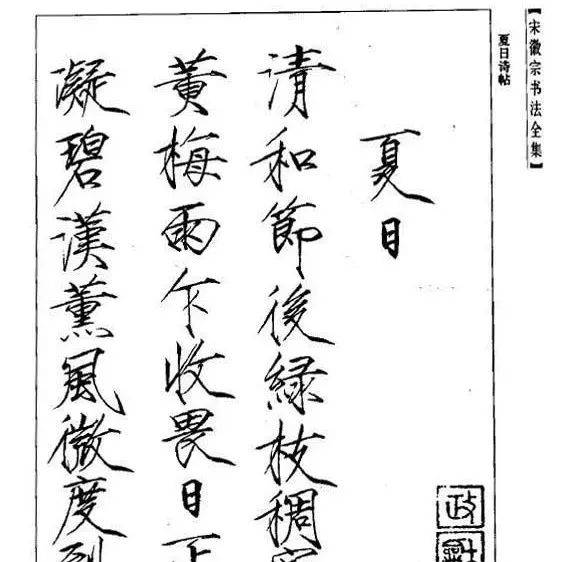 【宋徽宗书法全集】
夏日诗帖
夏日
清和節後緑枝稠
黄梅雨乍收畏日
凝碧漢薰風微度
政